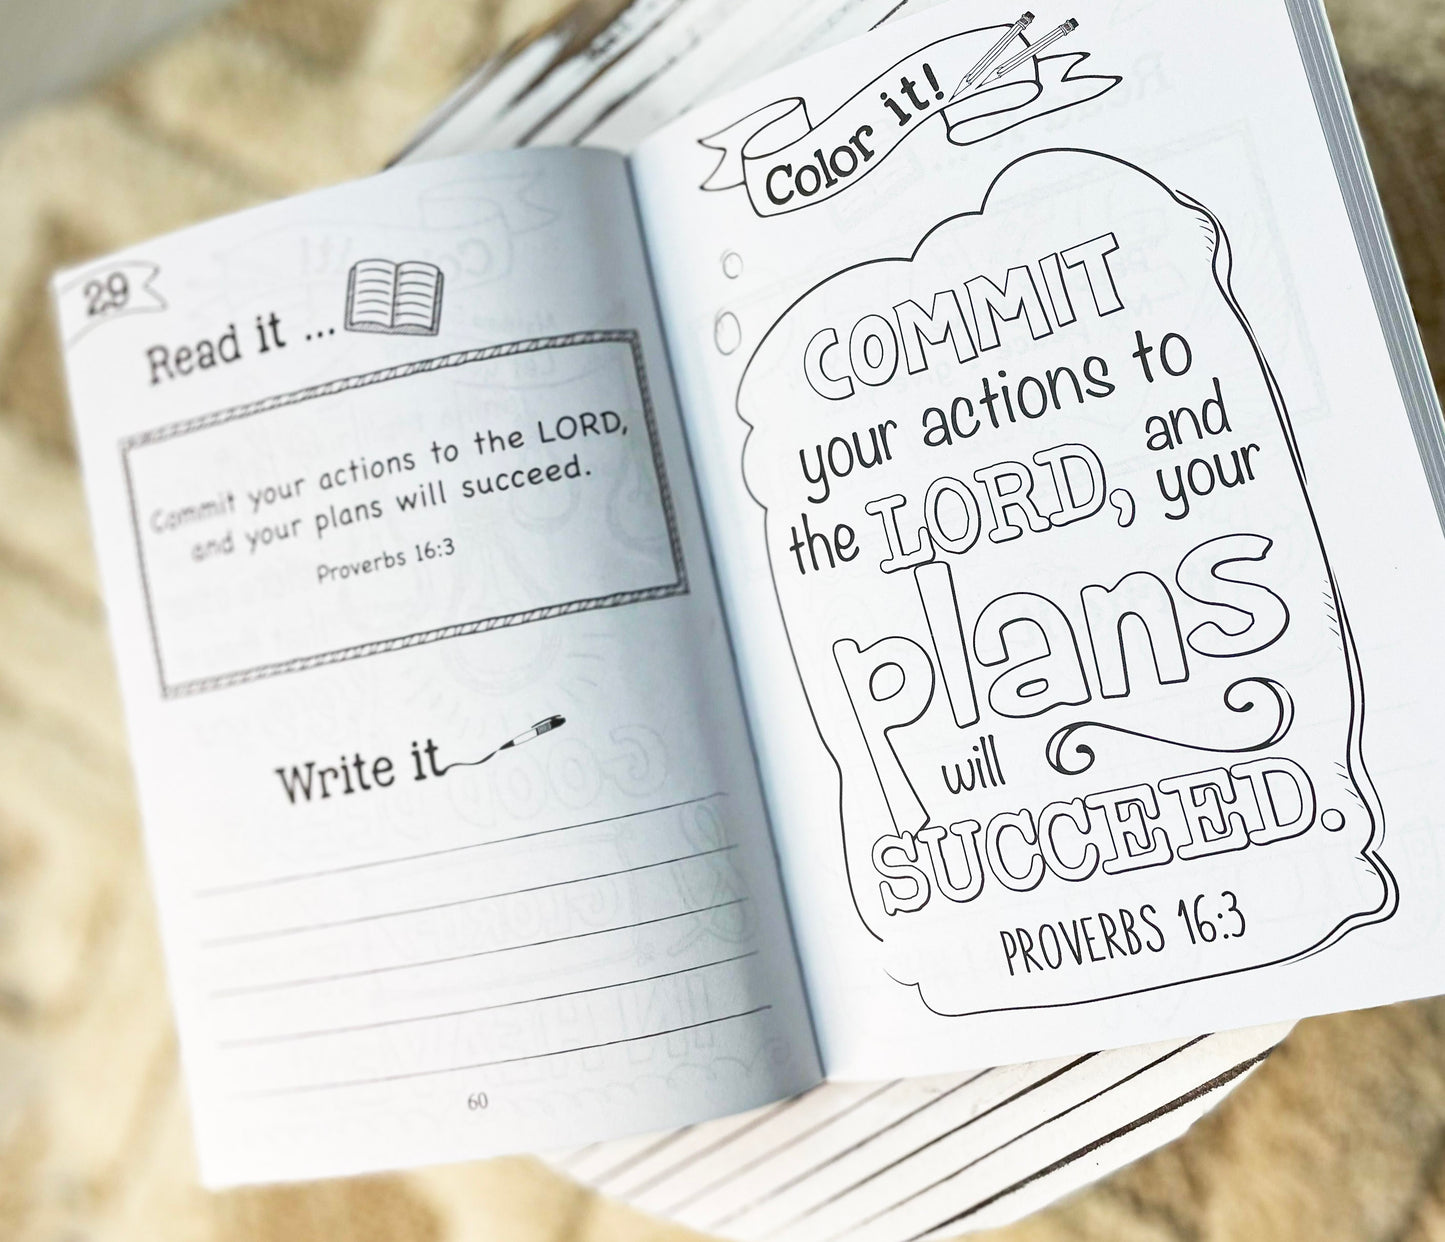 29
Read it ...
Commit your actions to the LORD,
and your plans will succeed.
Proverbs 16:3
Write it
60
Color it!
COMMIT
your actions to
the LORD, and your
plans
will
SUCCEED.
PROVERBS 16:3